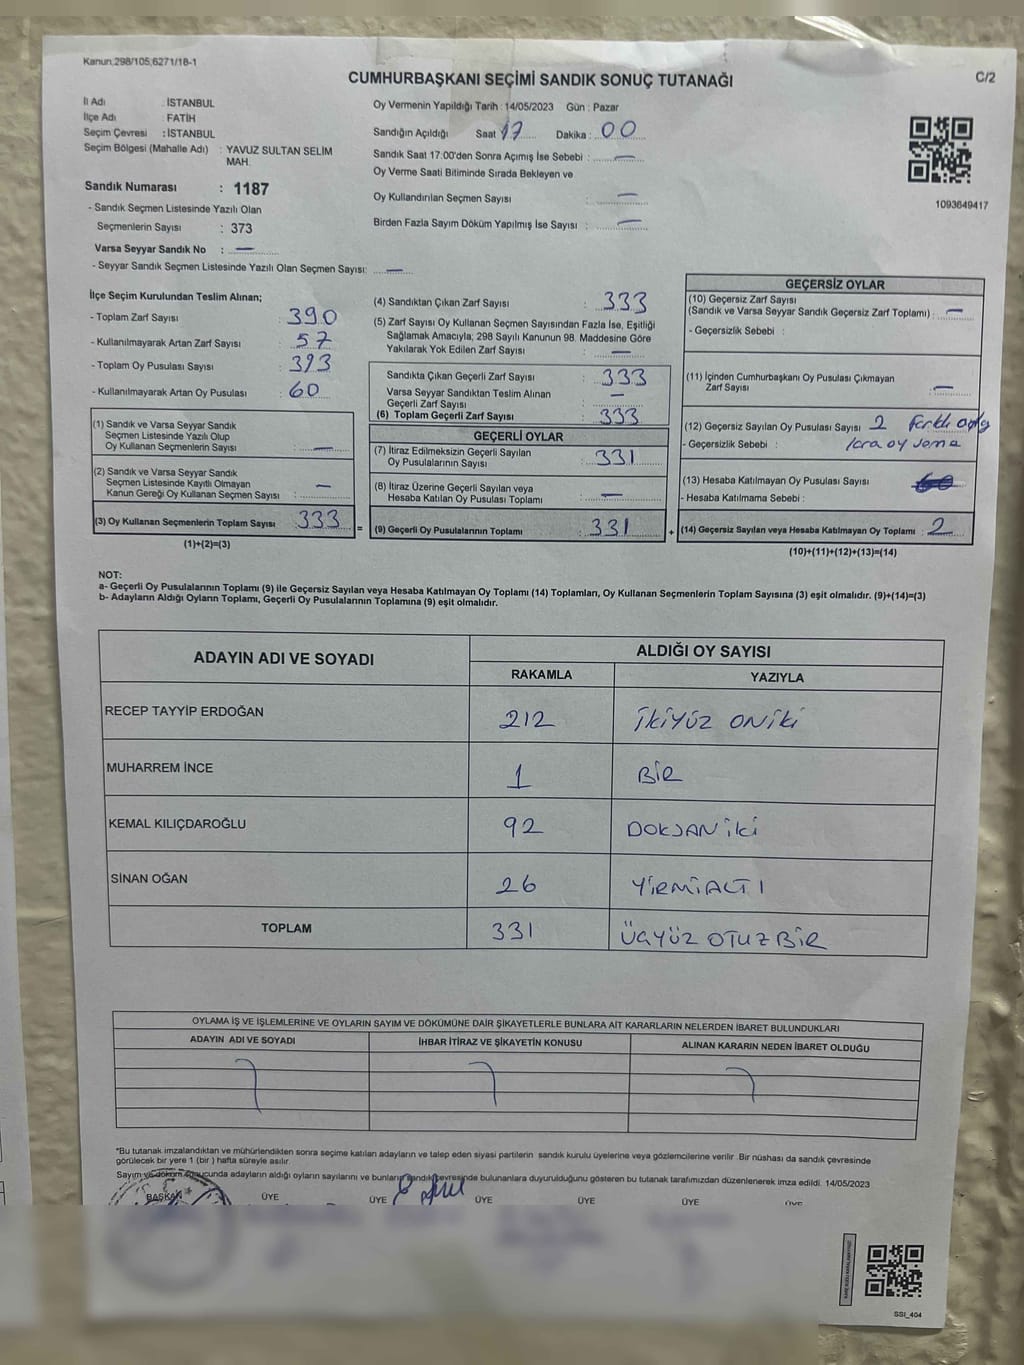 Kanun;298/105;6271/18-1
CUMHURBAŞKANI SEÇİMİ SANDIK SONUÇ TUTANAĞI
C/2
İl Adı : İSTANBUL
İlçe Adı : FATİH
Seçim Çevresi : İSTANBUL
Seçim Bölgesi (Mahalle Adı) : YAVUZ SULTAN SELİM
MAH.
Sandık Numarası : 1187
- Sandık Seçmen Listesinde Yazılı Olan
Seçmenlerin Sayısı : 373
Varsa Seyyar Sandık No : —
- Seyyar Sandık Seçmen Listesinde Yazılı Olan Seçmen Sayısı: —
Oy Vermenin Yapıldığı Tarih : 14/05/2023 Gün : Pazar
Sandığın Açıldığı Saat 17 Dakika : 00
Sandık Saat 17:00'den Sonra Açımış İse Sebebi : —
Oy Verme Saati Bitiminde Sırada Bekleyen ve
Oy Kullandırılan Seçmen Sayısı : —
Birden Fazla Sayım Döküm Yapılmış İse Sayısı : —
1093649417
İlçe Seçim Kurulundan Teslim Alınan;
- Toplam Zarf Sayısı : 390
- Kullanılmayarak Artan Zarf Sayısı : 57
- Toplam Oy Pusulası Sayısı : 393
- Kullanılmayarak Artan Oy Pusulası : 60
(1) Sandık ve Varsa Seyyar Sandık
Seçmen Listesinde Yazılı Olup
Oy Kullanan Seçmenlerin Sayısı : —
(2) Sandık ve Varsa Seyyar Sandık
Seçmen Listesinde Kayıtlı Olmayan
Kanun Gereği Oy Kullanan Seçmen Sayısı : —
(3) Oy Kullanan Seçmenlerin Toplam Sayısı : 333
(1)+(2)=(3)
(4) Sandıktan Çıkan Zarf Sayısı : 333
(5) Zarf Sayısı Oy Kullanan Seçmen Sayısından Fazla İse, Eşitliği
Sağlamak Amacıyla; 298 Sayılı Kanunun 98. Maddesine Göre
Yakılarak Yok Edilen Zarf Sayısı : —
Sandıkta Çıkan Geçerli Zarf Sayısı : 333
Varsa Seyyar Sandıktan Teslim Alınan
Geçerli Zarf Sayısı : —
(6) Toplam Geçerli Zarf Sayısı : 333
GEÇERLİ OYLAR
(7) İtiraz Edilmeksizin Geçerli Sayılan
Oy Pusulalarının Sayısı : 331
(8) İtiraz Üzerine Geçerli Sayılan veya
Hesaba Katılan Oy Pusulası Toplamı : —
(9) Geçerli Oy Pusulalarının Toplamı : 331
GEÇERSİZ OYLAR
(10) Geçersiz Zarf Sayısı
(Sandık ve Varsa Seyyar Sandık Geçersiz Zarf Toplamı) : —
- Geçersizlik Sebebi :
(11) İçinden Cumhurbaşkanı Oy Pusulası Çıkmayan
Zarf Sayısı : —
(12) Geçersiz Sayılan Oy Pusulası Sayısı : 2 farklı
- Geçersizlik Sebebi : oy
(13) Hesaba Katılmayan Oy Pusulası Sayısı :
- Hesaba Katılmama Sebebi :
(14) Geçersiz Sayılan veya Hesaba Katılmayan Oy Toplamı : 2
(10)+(11)+(12)+(13)=(14)
NOT:
a- Geçerli Oy Pusulalarının Toplamı (9) ile Geçersiz Sayılan veya Hesaba Katılmayan Oy Toplamı (14) Toplamları, Oy Kullanan Seçmenlerin Toplam Sayısına (3) eşit olmalıdır. (9)+(14)=(3)
b- Adayların Aldığı Oyların Toplamı, Geçerli Oy Pusulalarının Toplamına (9) eşit olmalıdır.
ADAYIN ADI VE SOYADI ALDIĞI OY SAYISI
RAKAMLA YAZIYLA
RECEP TAYYİP ERDOĞAN 212 İKİYÜZ ONİKİ
MUHARREM İNCE 1 BİR
KEMAL KILIÇDAROĞLU 92 DOKSAN İKİ
SİNAN OĞAN 26 YİRMİALTI
TOPLAM 331 ÜÇYÜZ OTUZ BİR
OYLAMA İŞ VE İŞLEMLERİNE VE OYLARIN SAYIM VE DÖKÜMÜNE DAİR ŞİKAYETLERLE BUNLARA AİT KARARLARIN NELERDEN İBARET BULUNDUKLARI
ADAYIN ADI VE SOYADI İHBAR İTİRAZ VE ŞİKAYETİN KONUSU ALINAN KARARIN NEDEN İBARET OLDUĞU
*Bu tutanak imzalandıktan ve mühürlendikten sonra seçime katılan adayların ve talep eden siyasi partilerin sandık kurulu üyelerine veya gözlemcilerine verilir. Bir nüshası da sandık çevresinde
görülecek bir yere 1 (bir) hafta süreyle asılır.
Sayım ve döküm sonucunda adayların aldığı oyların sayılarını ve bunların sandık çevresinde bulunanlara duyurulduğunu gösteren bu tutanak tarafımızdan düzenlenerek imza edildi. 14/05/2023
BAŞKAN ÜYE ÜYE ÜYE ÜYE ÜYE ÜYE
SSI_404